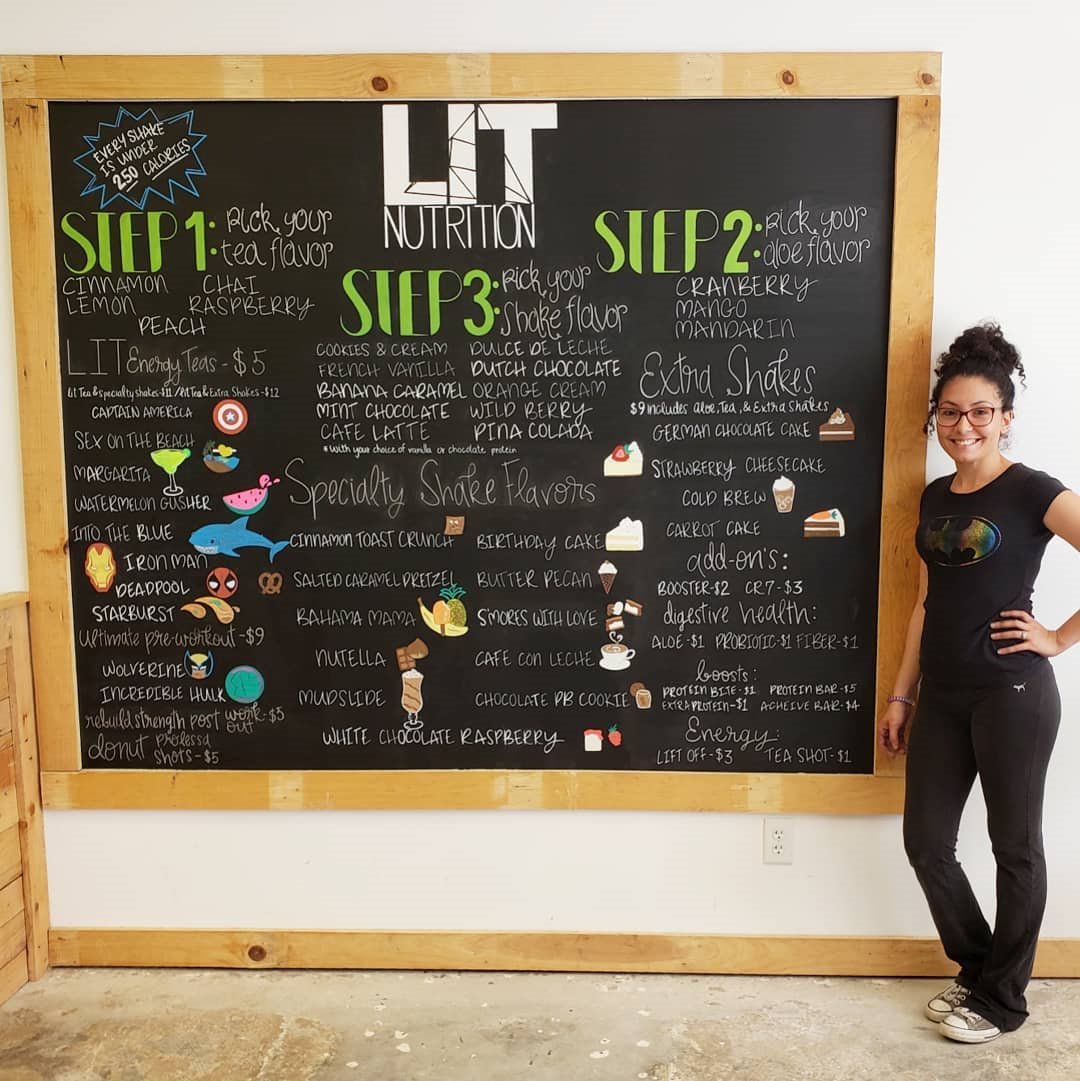 EVERY SHAKE
IS UNDER
250 CALORIES
LIT
NUTRITION
STEP 1: Pick your
tea flavor
CINNAMON CHAI
LEMON RASPBERRY
PEACH
STEP 2: Pick your
aloe flavor
CRANBERRY
MANGO
MANDARIN
STEP 3: Pick your
Shake flavor
COOKIES & CREAM DULCE DE LECHE
FRENCH VANILLA DUTCH CHOCOLATE
BANANA CARAMEL ORANGE CREAM
MINT CHOCOLATE WILD BERRY
CAFE LATTE PINA COLADA
*with your choice of vanilla or chocolate protein
LIT Energy Teas - $5
Lit Tea & specialty shakes-$11 / Lit Tea & Extra Shakes-$12
CAPTAIN AMERICA
SEX ON THE BEACH
MARGARITA
WATERMELON GUSHER
INTO THE BLUE
IRON MAN
DEADPOOL
STARBURST
Ultimate pre-workout-$9
WOLVERINE
INCREDIBLE HULK
rebuild strength post work out-$5
donut
shots-$5
Specialty Shake Flavors
CINNAMON TOAST CRUNCH BIRTHDAY CAKE
SALTED CARAMEL PRETZEL BUTTER PECAN
BAHAMA MAMA S'MORES WITH LOVE
NUTELLA CAFE CON LECHE
MUDSLIDE CHOCOLATE PB COOKIE
WHITE CHOCOLATE RASPBERRY
Extra Shakes
$9 includes Aloe, Tea, & Extra Shakes
GERMAN CHOCOLATE CAKE
STRAWBERRY CHEESECAKE
COLD BREW
CARROT CAKE
add-on's:
BOOSTER-$2 CR7-$3
digestive health:
ALOE-$1 PROBIOTIC-$1 FIBER-$1
boosts:
PROTEIN BITE-$2 PROTEIN BAR-$5
EXTRA PROTEIN-$1 ACHEIVE BAR-$4
Energy:
LIFT OFF-$3 TEA SHOT-$1